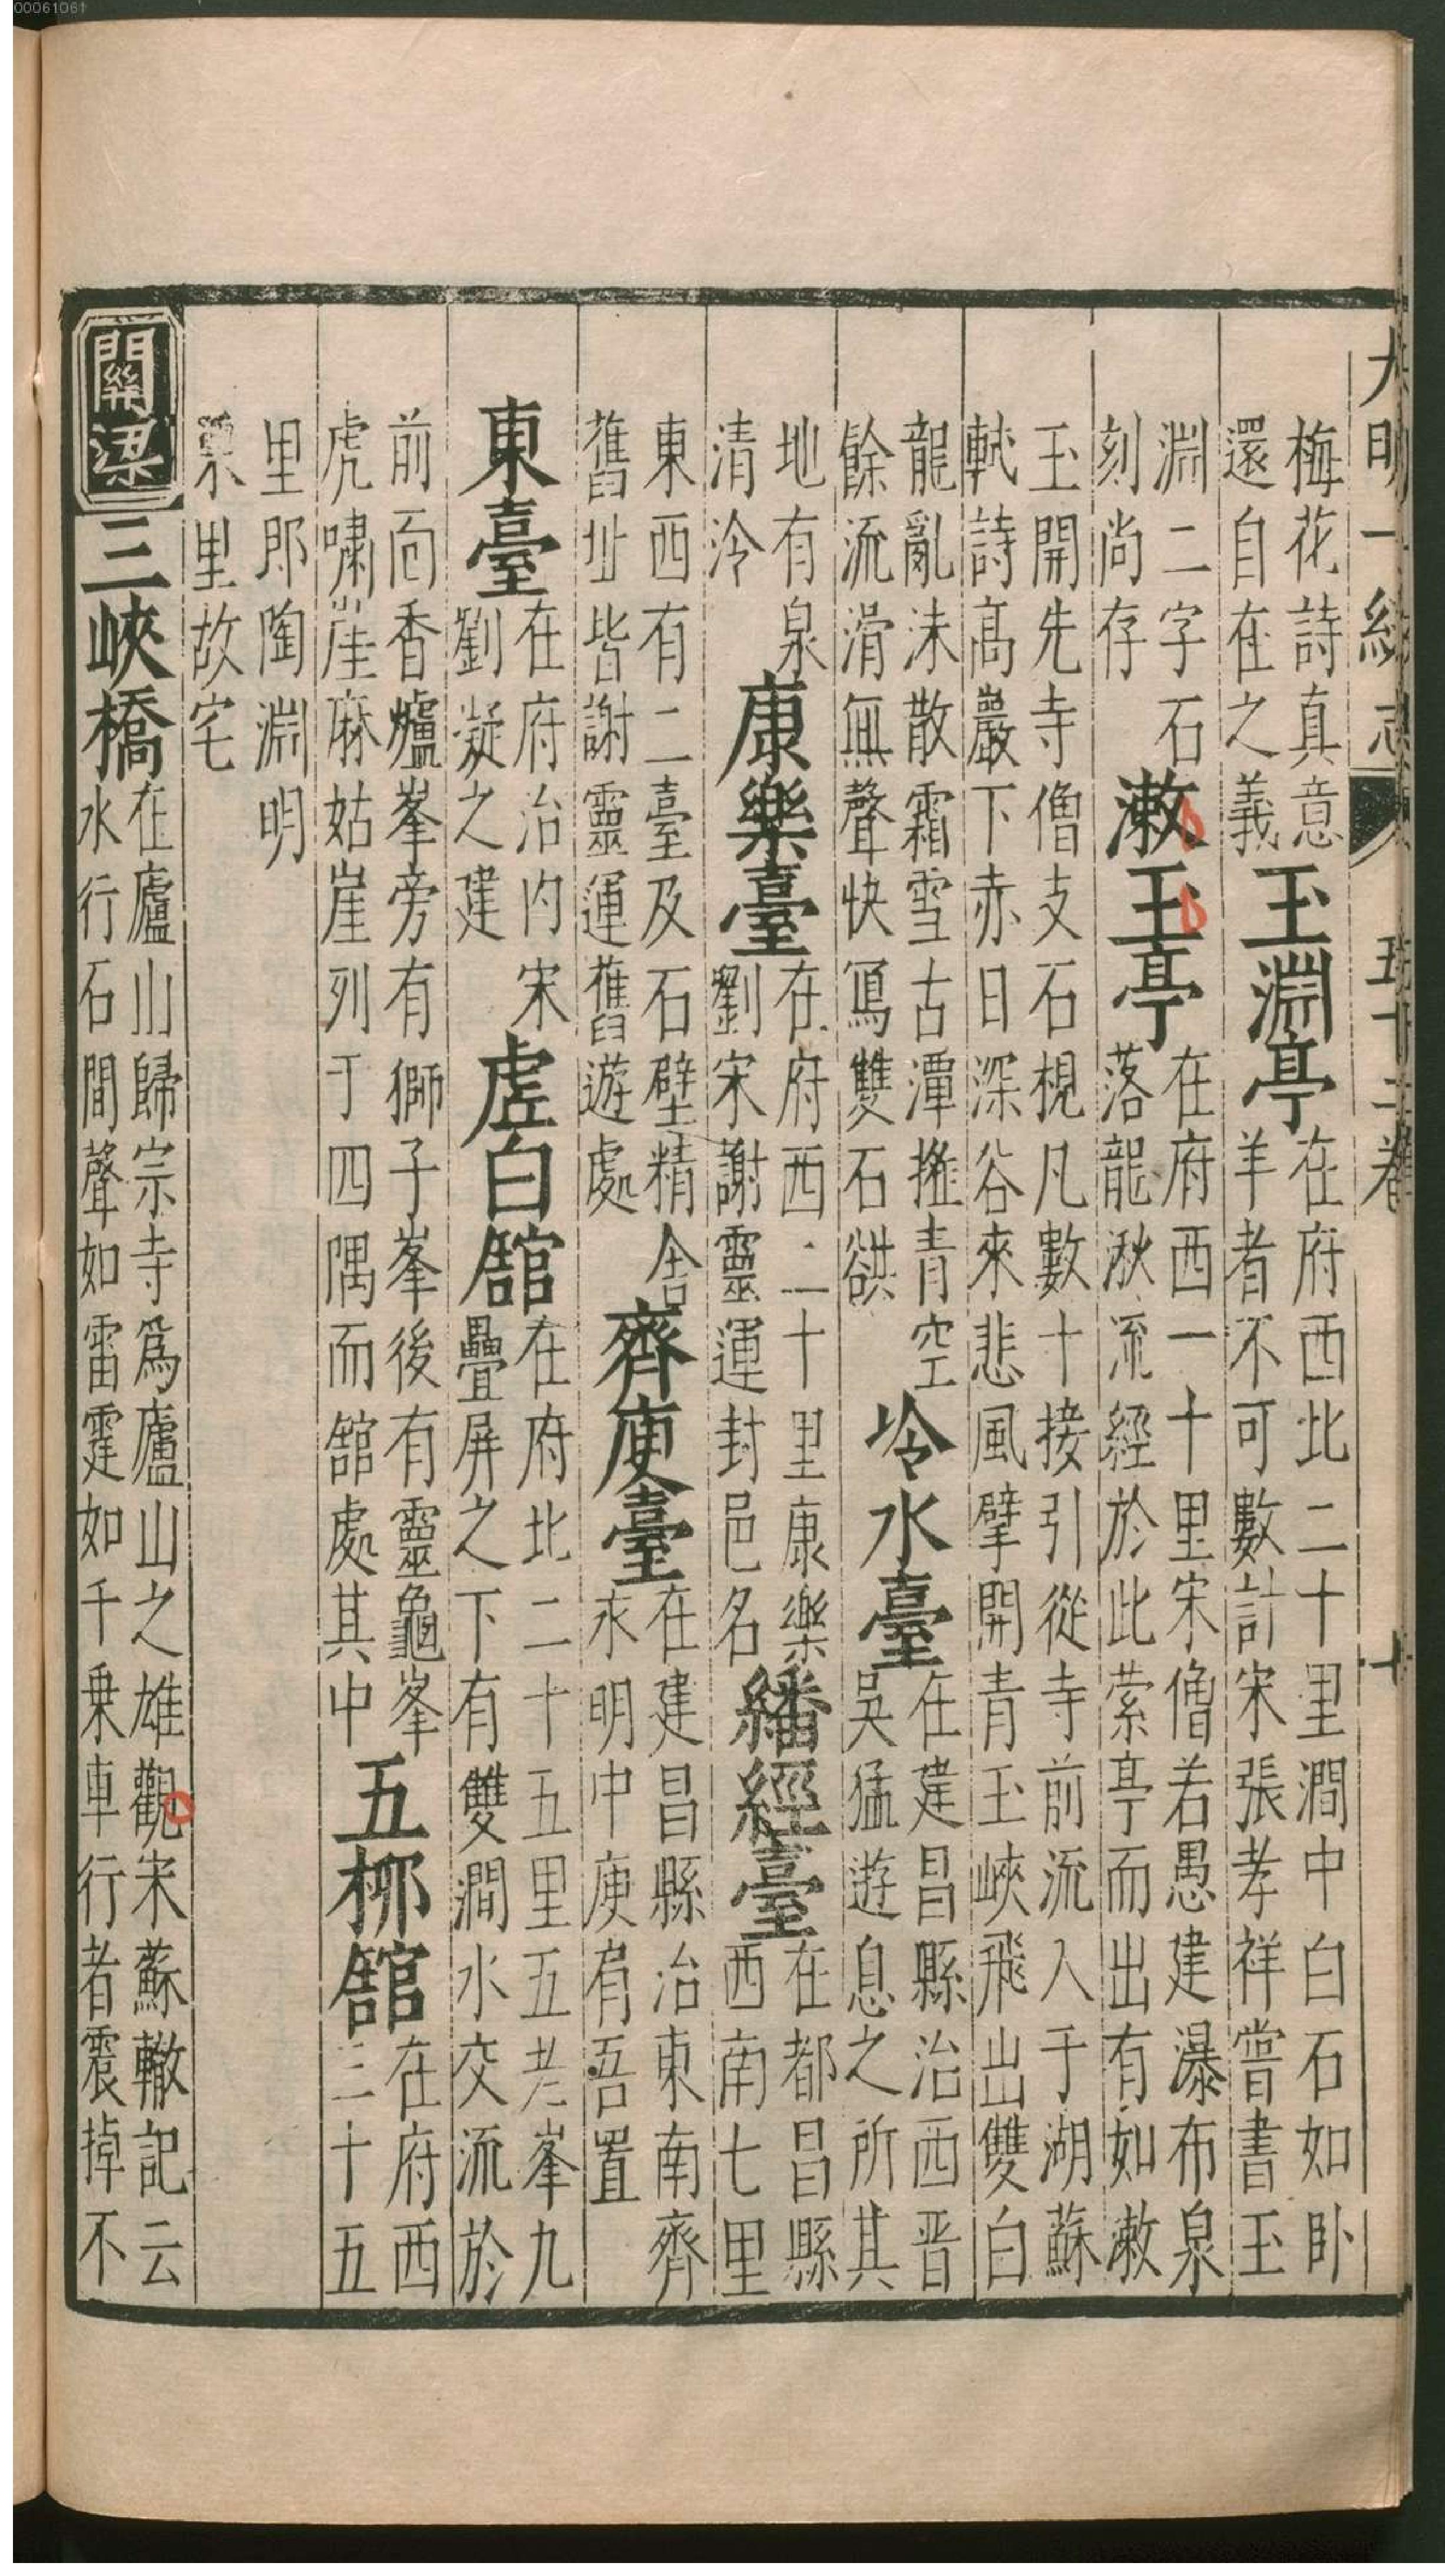 大明一統志 五十二卷 十
梅花詩真意還自在之義玉淵亭在府西北二十里澗中白石如卧羊者不可數計宋張孝祥嘗書玉
淵二字石刻尚存漱玉亭在府西一十里宋僧若愚建瀑布泉落龍湫流經於此縈亭而出有如漱
玉開先寺僧支石梘凡數十接引從寺前流入于湖蘇軾詩高巖下赤日深谷來悲風擘開青玉峽飛出雙白
龍亂沫散霜雪古潭摧青空餘流滑無聲快瀉雙石谼冷水臺在建昌縣治西晋吳猛遊息之所其
地有泉清泠康樂臺在府西二十里康樂劉宋謝靈運封邑名繙經臺在都昌縣西南七里
東西有二臺及石壁精舍舊址皆謝靈運舊遊處齊庾臺在建昌縣治東南齊永明中庾肩吾置
東臺在府治内宋劉凝之建虛白館在府北二十五里五老峯九疊屏之下有雙澗水交流於
前面香爐峯旁有獅子峯後有靈龜峯虎嘯崖麻姑崖列于四隅而館處其中五柳館在府西三十五
里即陶淵明栗里故宅
關梁三峽橋在廬山歸宗寺爲廬山之雄觀宋蘇轍記云水行石間聲如雷霆如千乗車行者震掉不